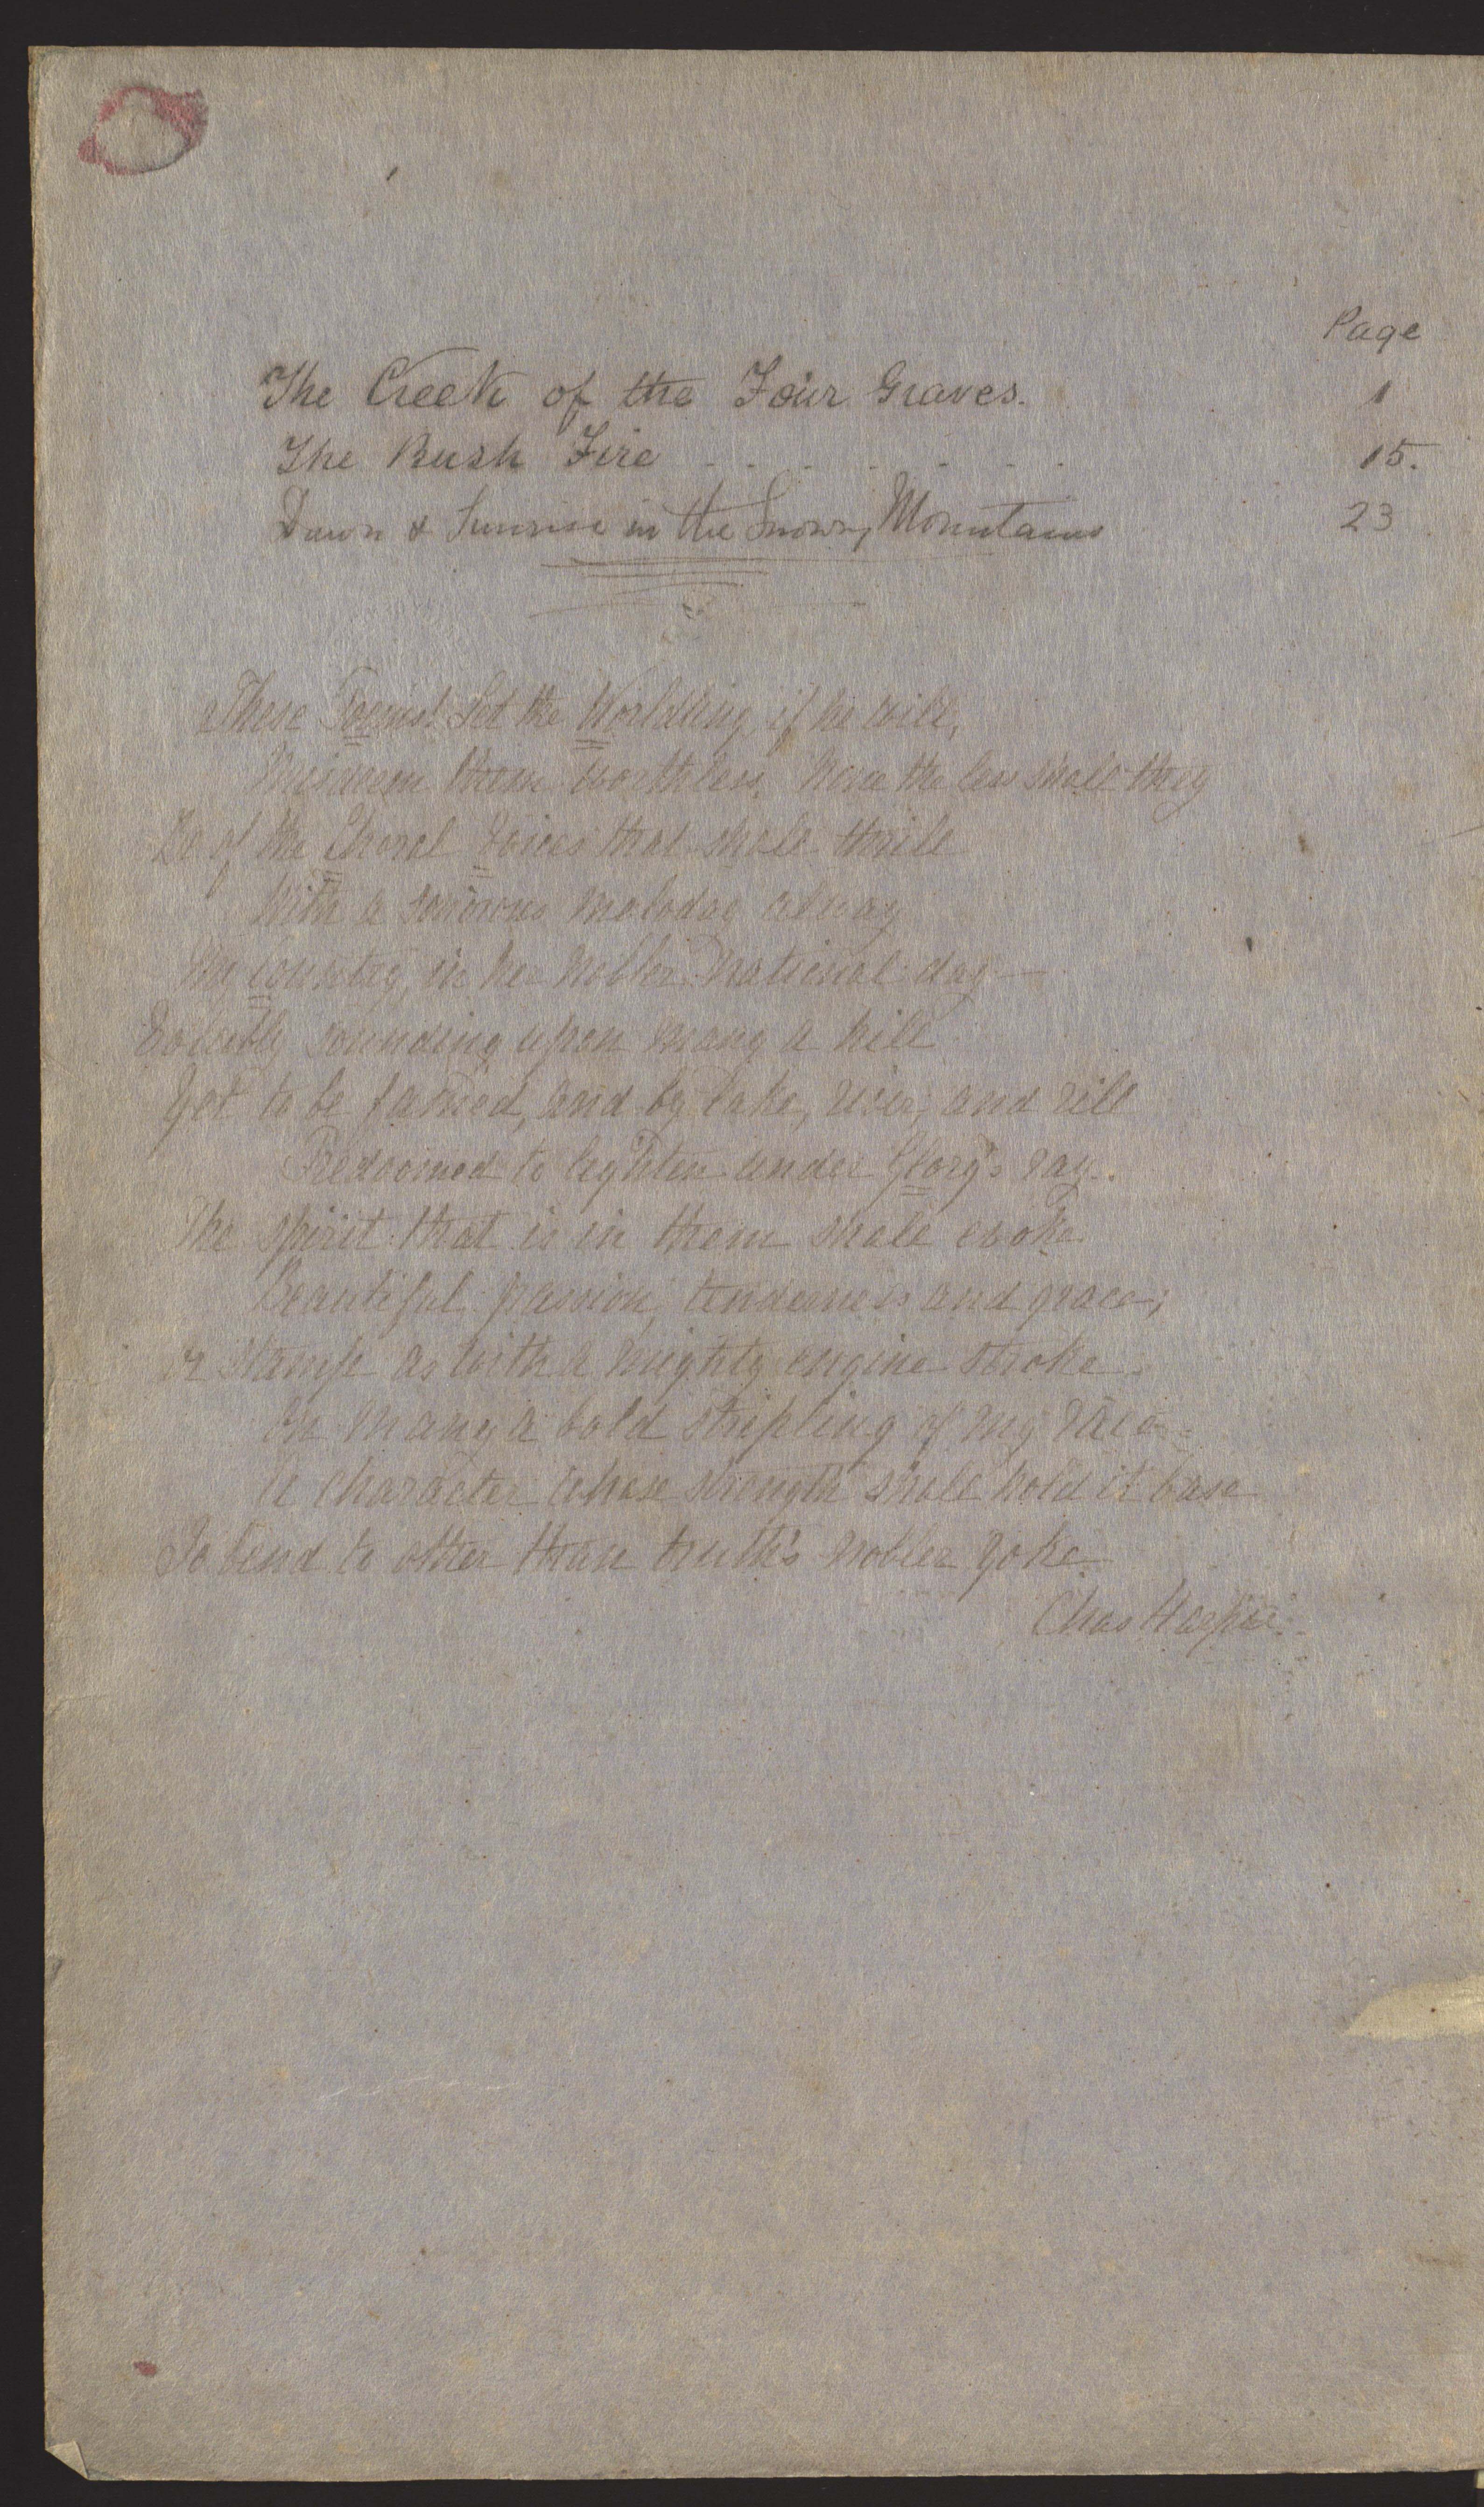 Page
The Creek of the Four Graves. 1
The Bush Fire . . . . . . . 15.
Dawn & Sunrise in the Snowy Mountains 23
These Poems! Let the Worldling, if he will,
Misdeem them worthless. None the less shall they
Be of the Choral Voices that shall thrill
With a sonorous melodae alway
My Country, in her nobler national day—
sounding upon many a hill
Yet to be famed, and by lake, river, and rill
Predoomed to lighten under Glory's ray.
The spirit that is in them shall evoke
Beautiful passion, tenderness and grace;
Or stamp as with a mighty engine stroke
On many a bold stripling of my race
A character whose strength shall hold it base
To bend to other than truth's nobler yoke
Chas Harpur.